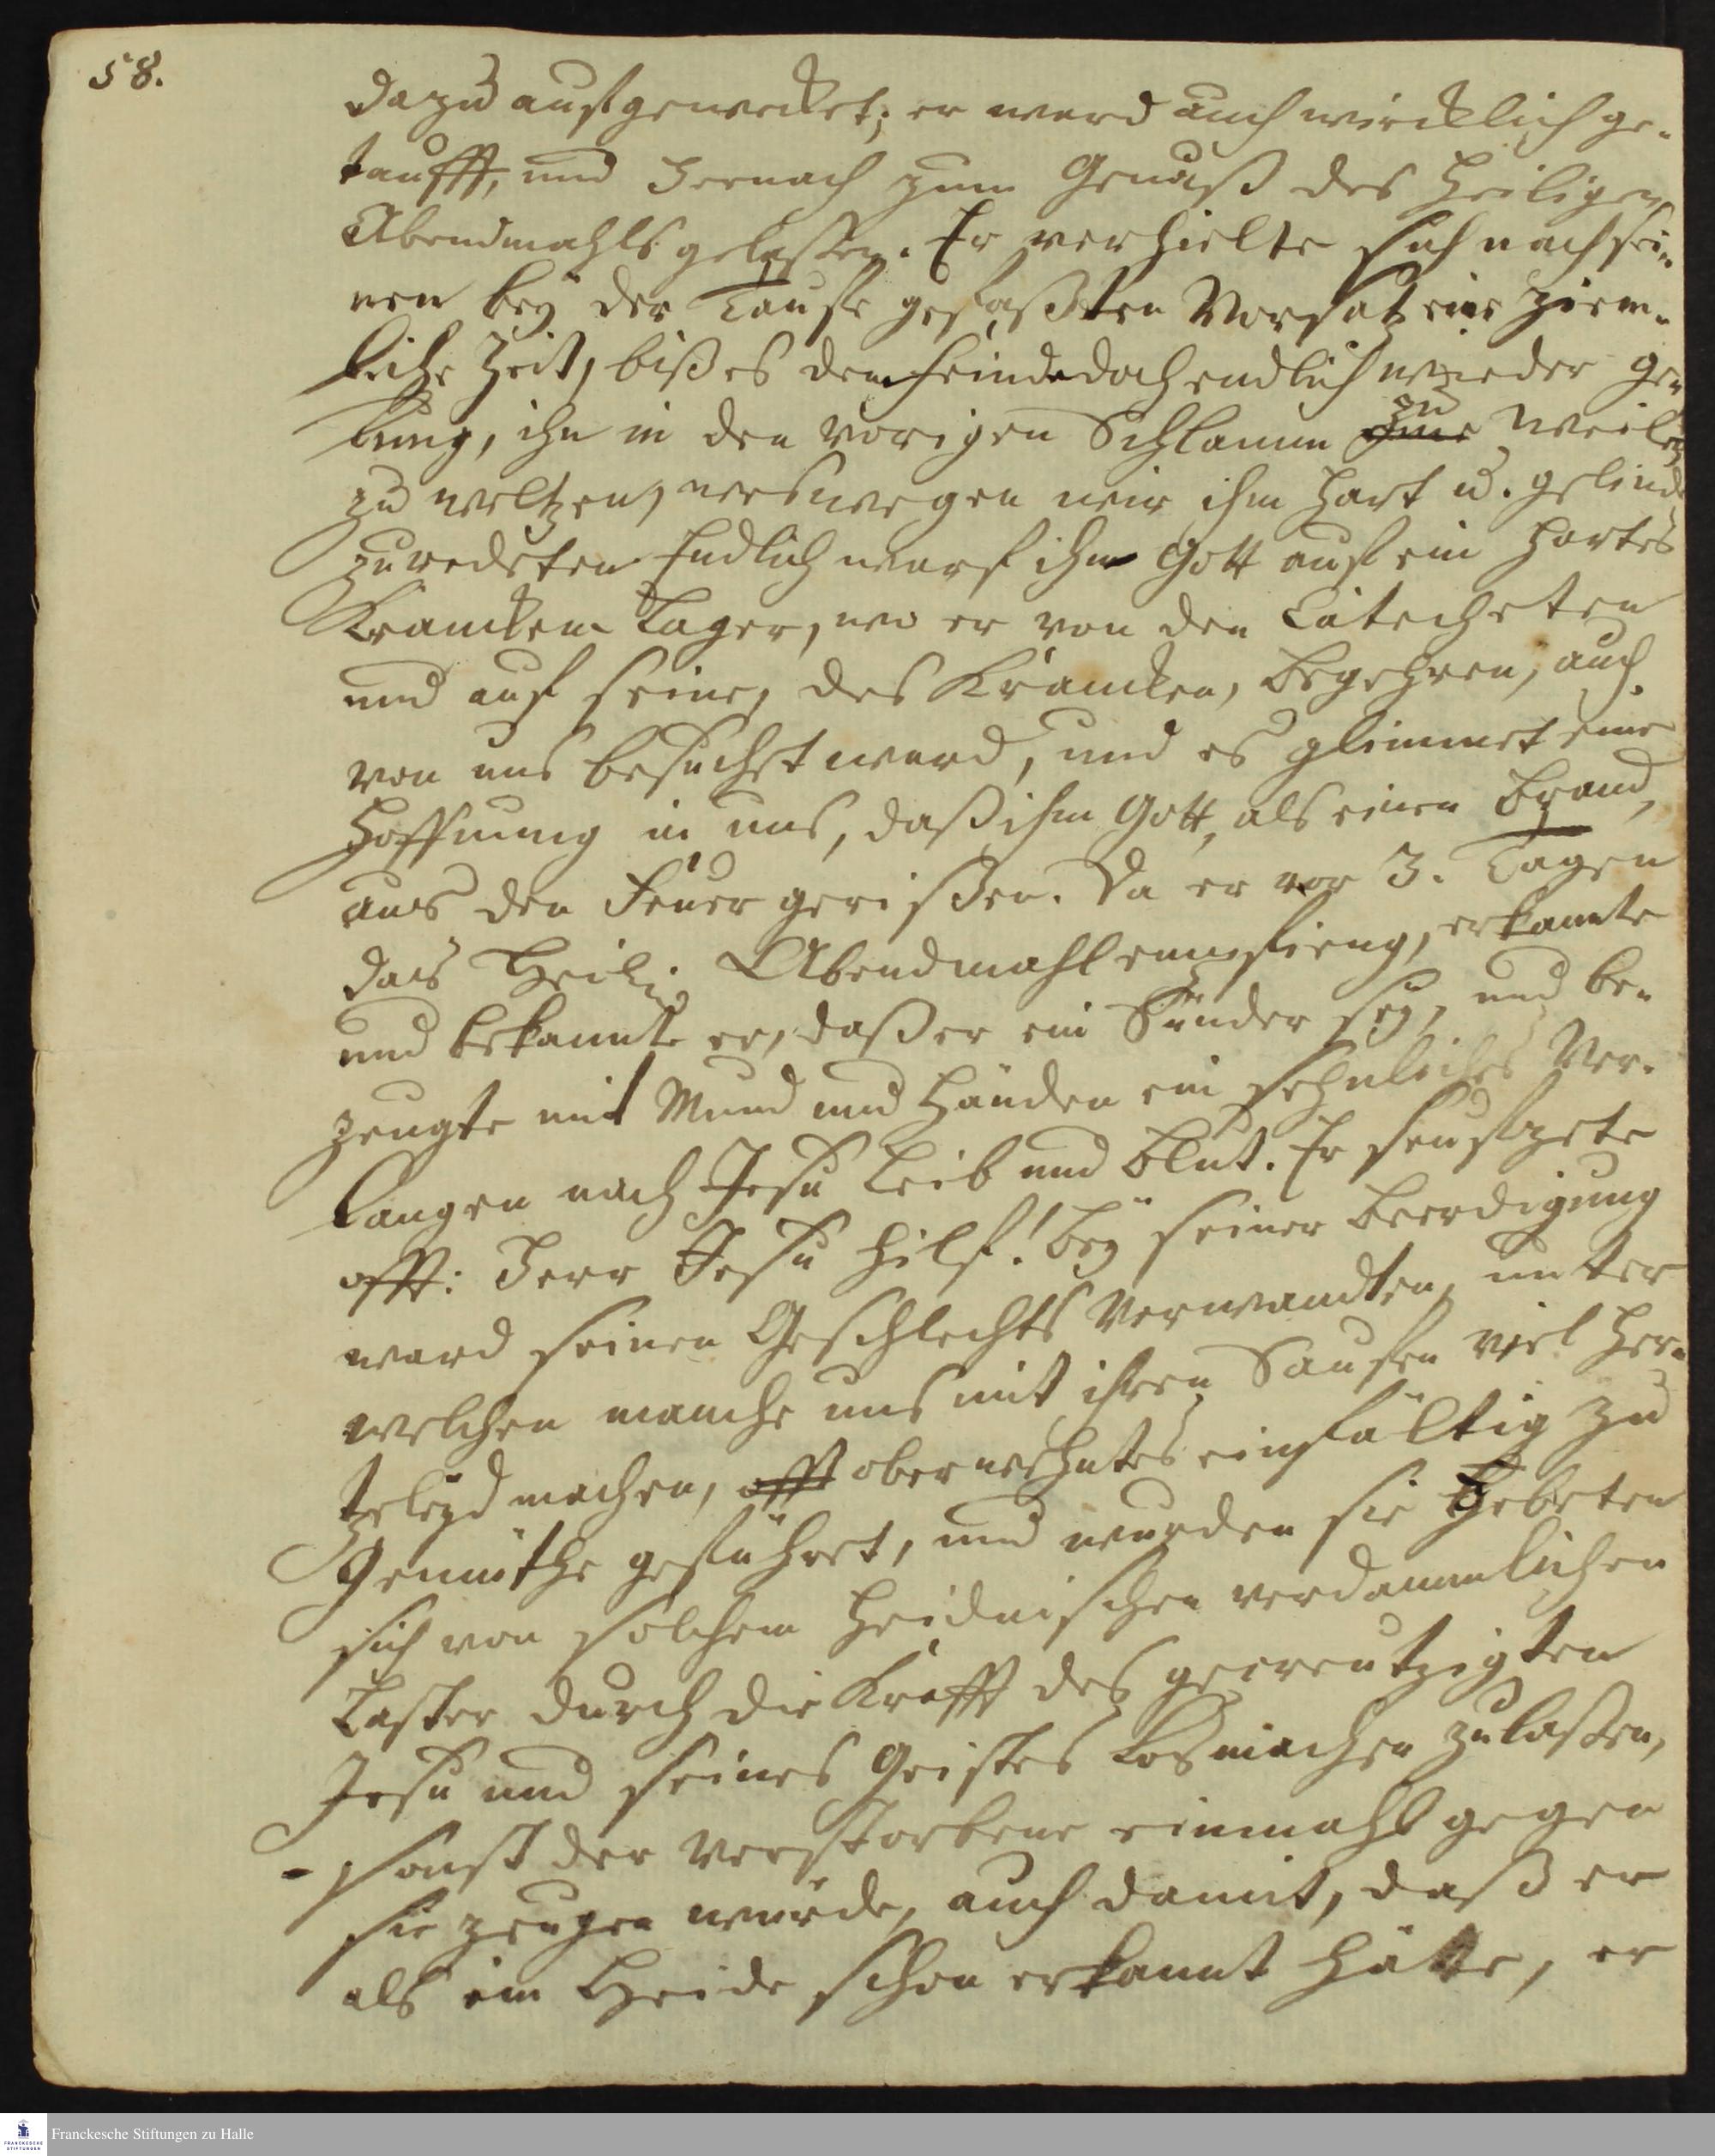 58.
dazu aufgewecket; er ward auch wircklich ge-
taufft, und hernach zum Genuß des Heiligen
Abendmahls gelaßen. Er verhielte sich nach sei-
nen bey der Tauffe gefaßten Vorsatz eine ziem-
liche Zeit, biß es dem Feinde doch endlich wieder ge-
lung, ihn in den vorigen Schlamm zu
zu weltzen, weswegen wir ihm hart u. gelinde
zuredeten. Endlich warf ihn Gott auf ein hartes
Krancken Lager, wo er von den Catecheten
und auf seine, des Krancken, Begehren, auch
von uns besucht ward, und es glimmet eine
Hoffnung in uns, daß ihn Gott, als einen Brand,
aus den Feuer gerißen. Da er vor 3. Tagen
das Heil. Abendmahl empfieng, erkannte
und bekannte er, daß er ein Sünder sey, und be-
zeugte mit Mund und Händen ein sehnliches Ver-
langen nach Jesu Leib und Blut. Er seufzete
offt: Herr Jesu hilf! Bey seiner Beerdigung
ward seinen Geschlechts Verwandten, unter
welchen manche uns mit ihren Saufen viel Her-
tzeleyd machen, offt oberwehntes einfältig zu
Gemüthe geführet, und wurden sie gebeten
sich von solchem Heidnischen verdammlichen
Laster durch die Krafft des gecreutzigten
Jesu und seines Geistes los machen zu laßen,
- sonst der Verstorbene einmahl gegen
sie zeugen würde, auch damit, daß er
als ein Heide schon erkannt hätte, er
Franckesche Stiftungen zu Halle
FRANCKESCHE
STIFTUNGEN